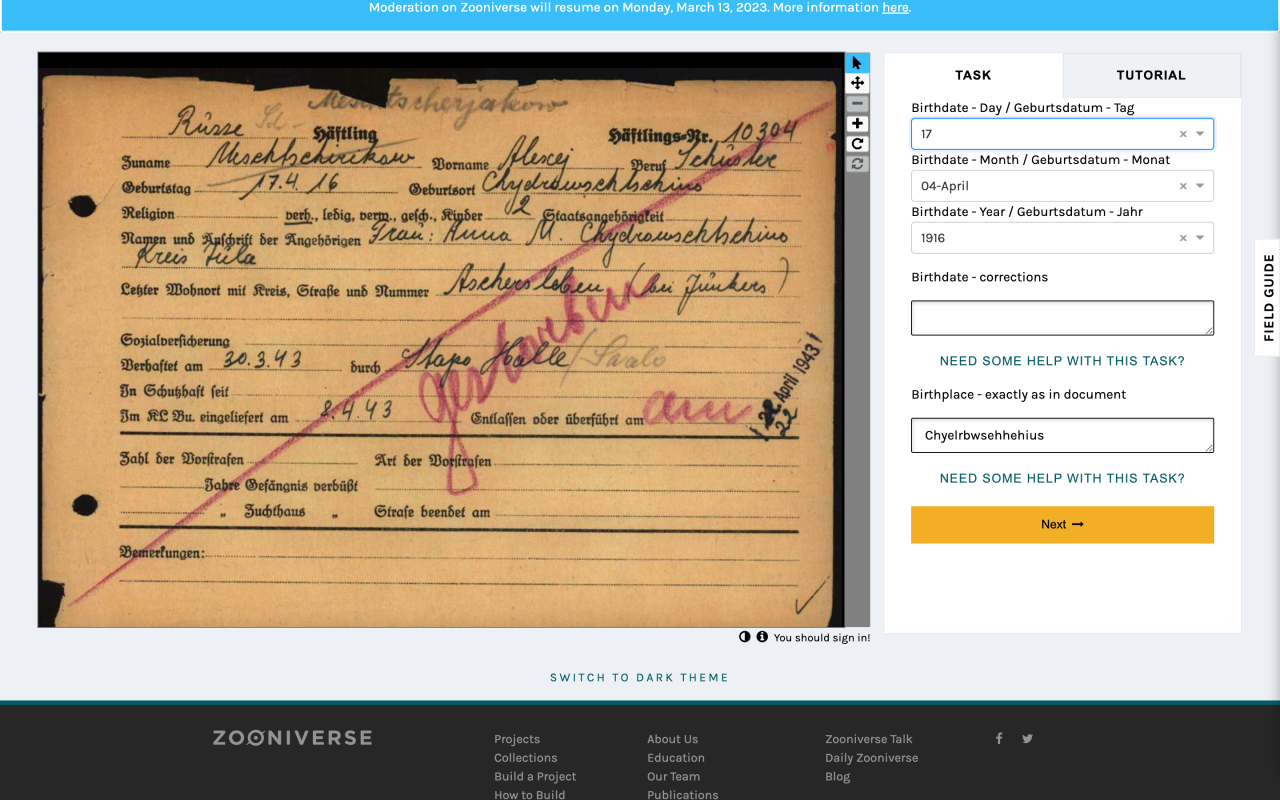 Moderation on Zooniverse will resume on Monday, March 13, 2023. More information here.
Meschtscherjakow
Russe Häftling Häftlings-Nr. 10304
Zuname Meschtscherikow Vorname Alexej Beruf Schuster
Geburtstag 17.4.16 Geburtsort Chydrowschtschino
Religion verh., ledig, verw., gesch., Kinder 2 Staatsangehörigkeit
Namen und Anschrift der Angehörigen Frau: Anna M. Chydrowschtschino
Kreis Tula
Letzter Wohnort mit Kreis, Straße und Nummer Aschersleben (bei Junkers)
Sozialversicherung
Verhaftet am 30.3.43 durch Stapo Halle/Saale
In Schutzhaft seit
Im KL Bu. eingeliefert am 8.4.43 Entlassen oder überführt am
gestorben am
22 April 1943
22
Zahl der Vorstrafen Art der Vorstrafen
Jahre Gefängnis verbüßt
„ Zuchthaus „ Strafe beendet am
Bemerkungen:
TASK
TUTORIAL
Birthdate - Day / Geburtsdatum - Tag
17
Birthdate - Month / Geburtsdatum - Monat
04-April
Birthdate - Year / Geburtsdatum - Jahr
1916
Birthdate - corrections
NEED SOME HELP WITH THIS TASK?
Birthplace - exactly as in document
Chyelrbwsehhehius
NEED SOME HELP WITH THIS TASK?
Next
FIELD GUIDE
You should sign in!
SWITCH TO DARK THEME
ZOONIVERSE
Projects
Collections
Build a Project
How to Build
About Us
Education
Our Team
Publications
Zooniverse Talk
Daily Zooniverse
Blog